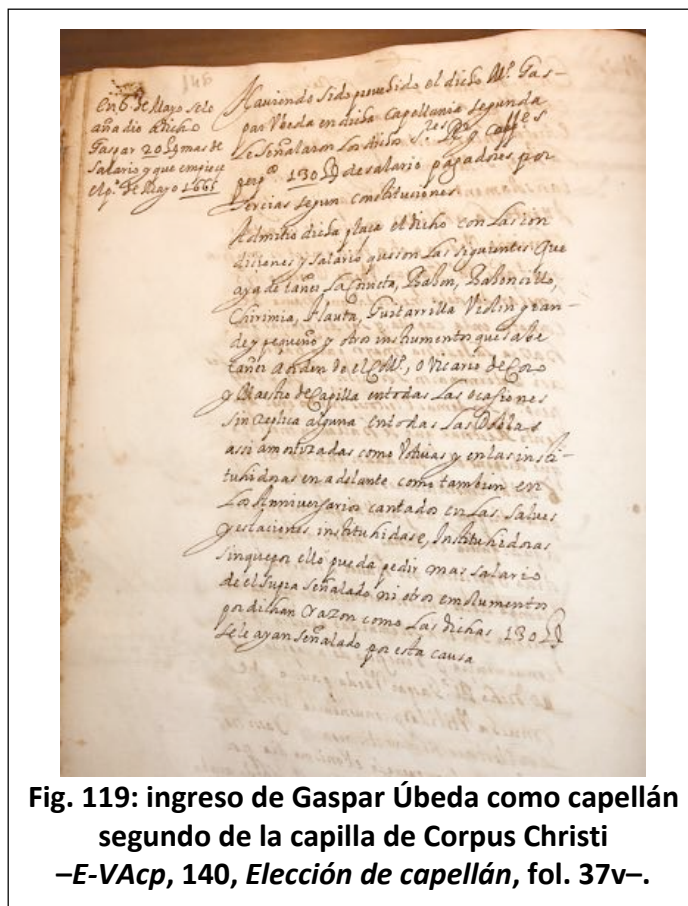 En 6 de Mayo se le
añadio a dicho
Gaspar 20 L mas de
salario y que empieçe
el p.º de Mayo 1665
Haviendo sido provehido el dicho M.º Gas-
par Vbeda en dicha Capellania segunda
Le señalaron los dichos S.res R.r y Coll.es
perp.os 130 L de salario pagadores por
tercias segun constituciones
Admitio dicha plaça el dicho con las con
diciones y salario que son las siguientes Que
aya de tañer la Corneta, Baxon, Baxoncillo,
Chirimia, Flauta, Guitarrilla Violin gran-
de y pequeño y otros instrumentos que sabe
tañer a orden de el Coll.º, o Vicario de Coro
y Maestro de Capilla en todas las ocasiones
sin replica alguna en todas las Doblas
assi amortizadas como Votivas y en las insti-
tuhidoras en adelante como tambien en
Los Anniversarios cantados en las Salves
y estaciones instituhidas e, Instituhidoras
sin que por ello pueda pedir mas salario
de el supra señalado ni otros emolumentos
por dicha razon como las dichas 130 L
se le ayan señalado por esta causa
Fig. 119: ingreso de Gaspar Úbeda como capellán
segundo de la capilla de Corpus Christi
–E-VAcp, 140, Elección de capellán, fol. 37v–.